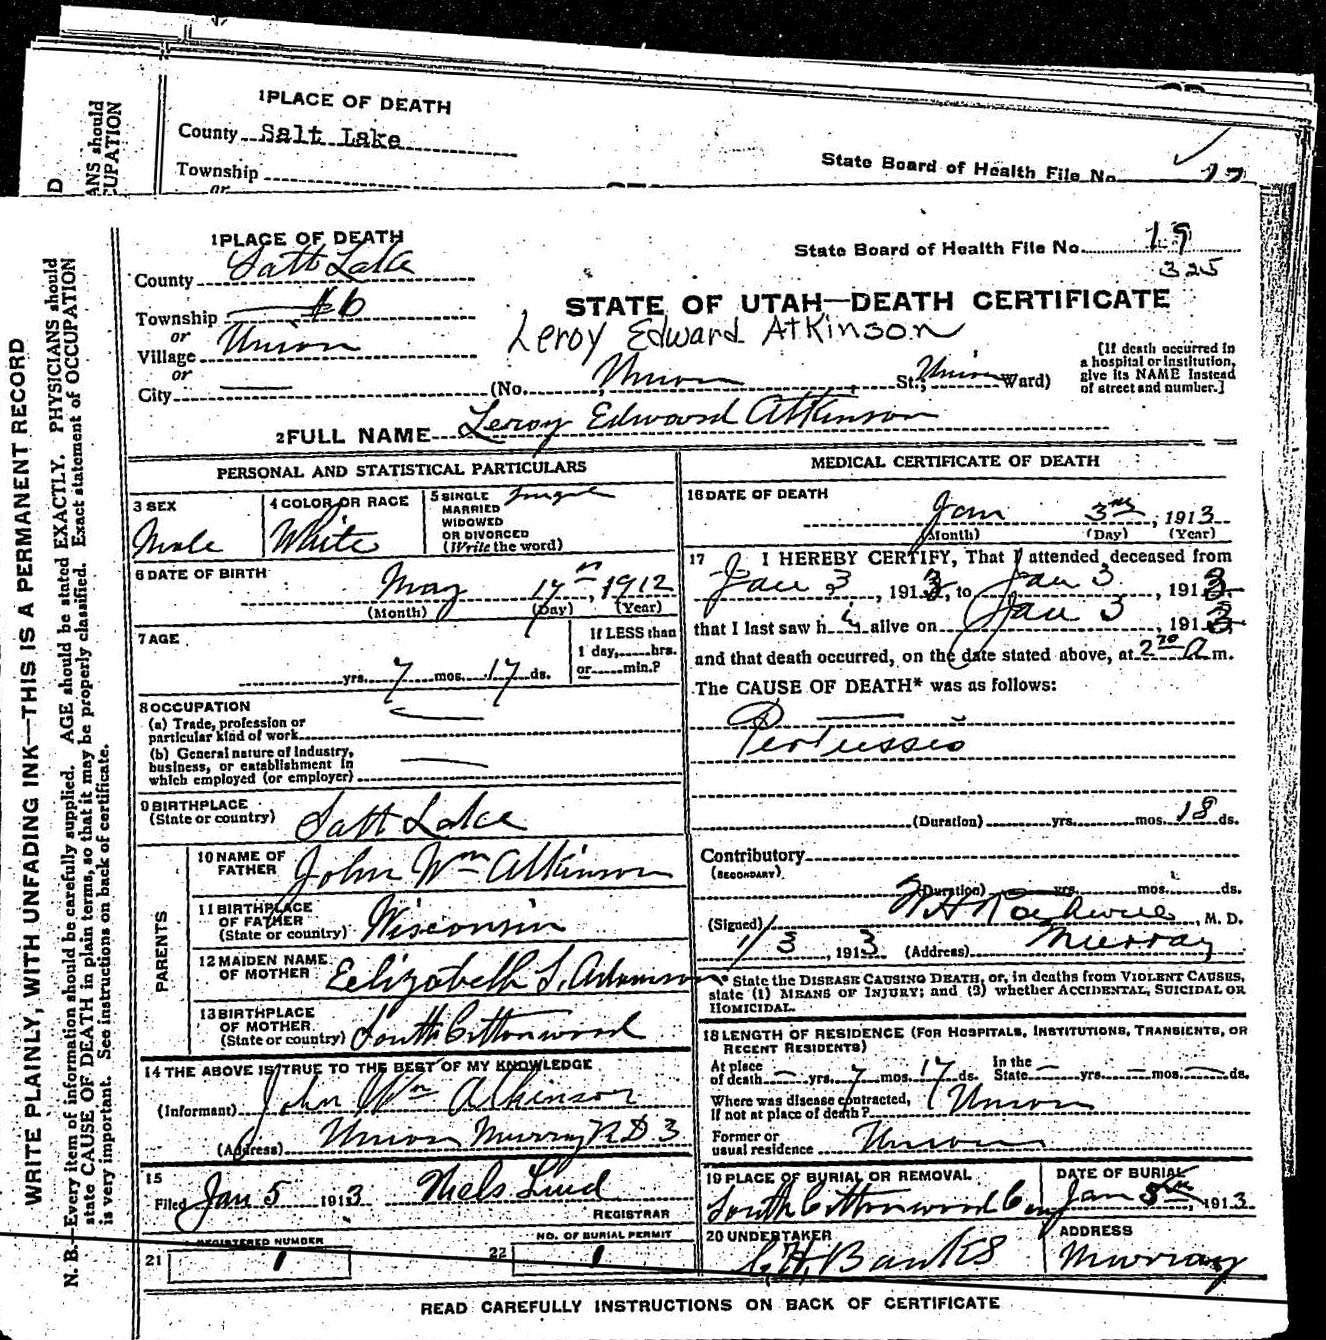 1PLACE OF DEATH
County Salt Lake
Township
or
State Board of Health File No. 17
1PLACE OF DEATH
County Salt Lake
Township
or
Village Union
or
City
State Board of Health File No. 19
325
STATE OF UTAH—DEATH CERTIFICATE
Leroy Edward Atkinson
(No. Union St.; Union Ward)
[If death occurred in
a hospital or institution,
give its NAME instead
of street and number.]
2FULL NAME Leroy Edward Atkinson
PERSONAL AND STATISTICAL PARTICULARS
3 SEX
Male
4 COLOR OR RACE
White
5 SINGLE
MARRIED
WIDOWED
OR DIVORCED
(Write the word)
Single
6 DATE OF BIRTH
May 17th, 1912
(Month) (Day) (Year)
7 AGE
yrs. 7 mos. 17 ds.
If LESS than
1 day, hrs.
or min.?
8 OCCUPATION
(a) Trade, profession or
particular kind of work
(b) General nature of industry,
business, or establishment in
which employed (or employer)
9 BIRTHPLACE
(State or country) Salt Lake
PARENTS
10 NAME OF
FATHER John Wm Atkinson
11 BIRTHPLACE
OF FATHER
(State or country) Wisconsin
12 MAIDEN NAME
OF MOTHER Eelizabeth S. Adamson
13 BIRTHPLACE
OF MOTHER
(State or country) South Cottonwood
14 THE ABOVE IS TRUE TO THE BEST OF MY KNOWLEDGE
(Informant) John Wm Atkinson
(Address) Union Murray RD 3
15
Filed Jan 5 1913 Niels Lind
REGISTRAR
REGISTERED NUMBER
21 1
NO. OF BURIAL PERMIT
22 1
MEDICAL CERTIFICATE OF DEATH
16 DATE OF DEATH
Jan 3rd, 1913
(Month) (Day) (Year)
17 I HEREBY CERTIFY, That I attended deceased from
Jan 3, 1913, to Jan 3, 1913
that I last saw h i alive on Jan 3, 1913
and that death occurred, on the date stated above, at 2 30 A m.
The CAUSE OF DEATH* was as follows:
Pertussis
(Duration) yrs. mos. 18 ds.
Contributory
(SECONDARY)
(Duration) yrs. mos. ds.
(Signed) , M. D.
1/3, 1913 (Address) Murray
* State the DISEASE CAUSING DEATH, or, in deaths from VIOLENT CAUSES,
state (1) MEANS OF INJURY; and (2) whether ACCIDENTAL, SUICIDAL OR
HOMICIDAL.
18 LENGTH OF RESIDENCE (FOR HOSPITALS, INSTITUTIONS, TRANSIENTS, OR
RECENT RESIDENTS)
At place
of death — yrs. 7 mos. 17 ds.
In the
State — yrs. — mos. — ds.
Where was disease contracted,
if not at place of death? Union
Former or
usual residence Union
19 PLACE OF BURIAL OR REMOVAL
South Cottonwood Cem
DATE OF BURIAL
Jan 5th, 1913
20 UNDERTAKER
Banks
ADDRESS
Murray
READ CAREFULLY INSTRUCTIONS ON BACK OF CERTIFICATE
WRITE PLAINLY, WITH UNFADING INK—THIS IS A PERMANENT RECORD
N. B.—Every item of information should be carefully supplied. AGE should be stated EXACTLY. PHYSICIANS should
state CAUSE OF DEATH in plain terms, so that it may be properly classified. Exact statement of OCCUPATION
is very important. See instructions on back of certificate.